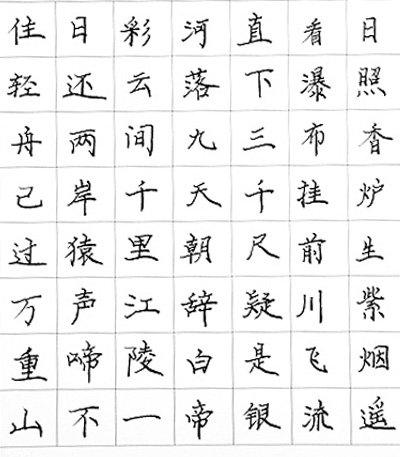 日照香炉生紫烟遥
看瀑布挂前川飞流
直下三千尺疑是银
河落九天朝辞白帝
彩云间千里江陵一
日还两岸猿声啼不
佳轻舟已过万重山